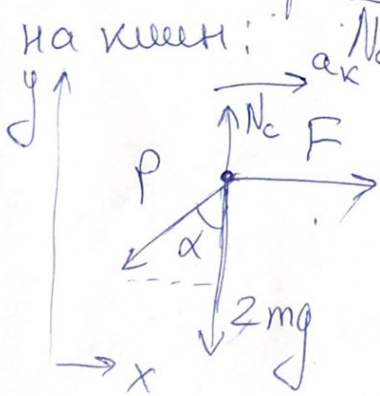 на клин:
y
N_c
a_к
N_c
F
P
α
2mg
x